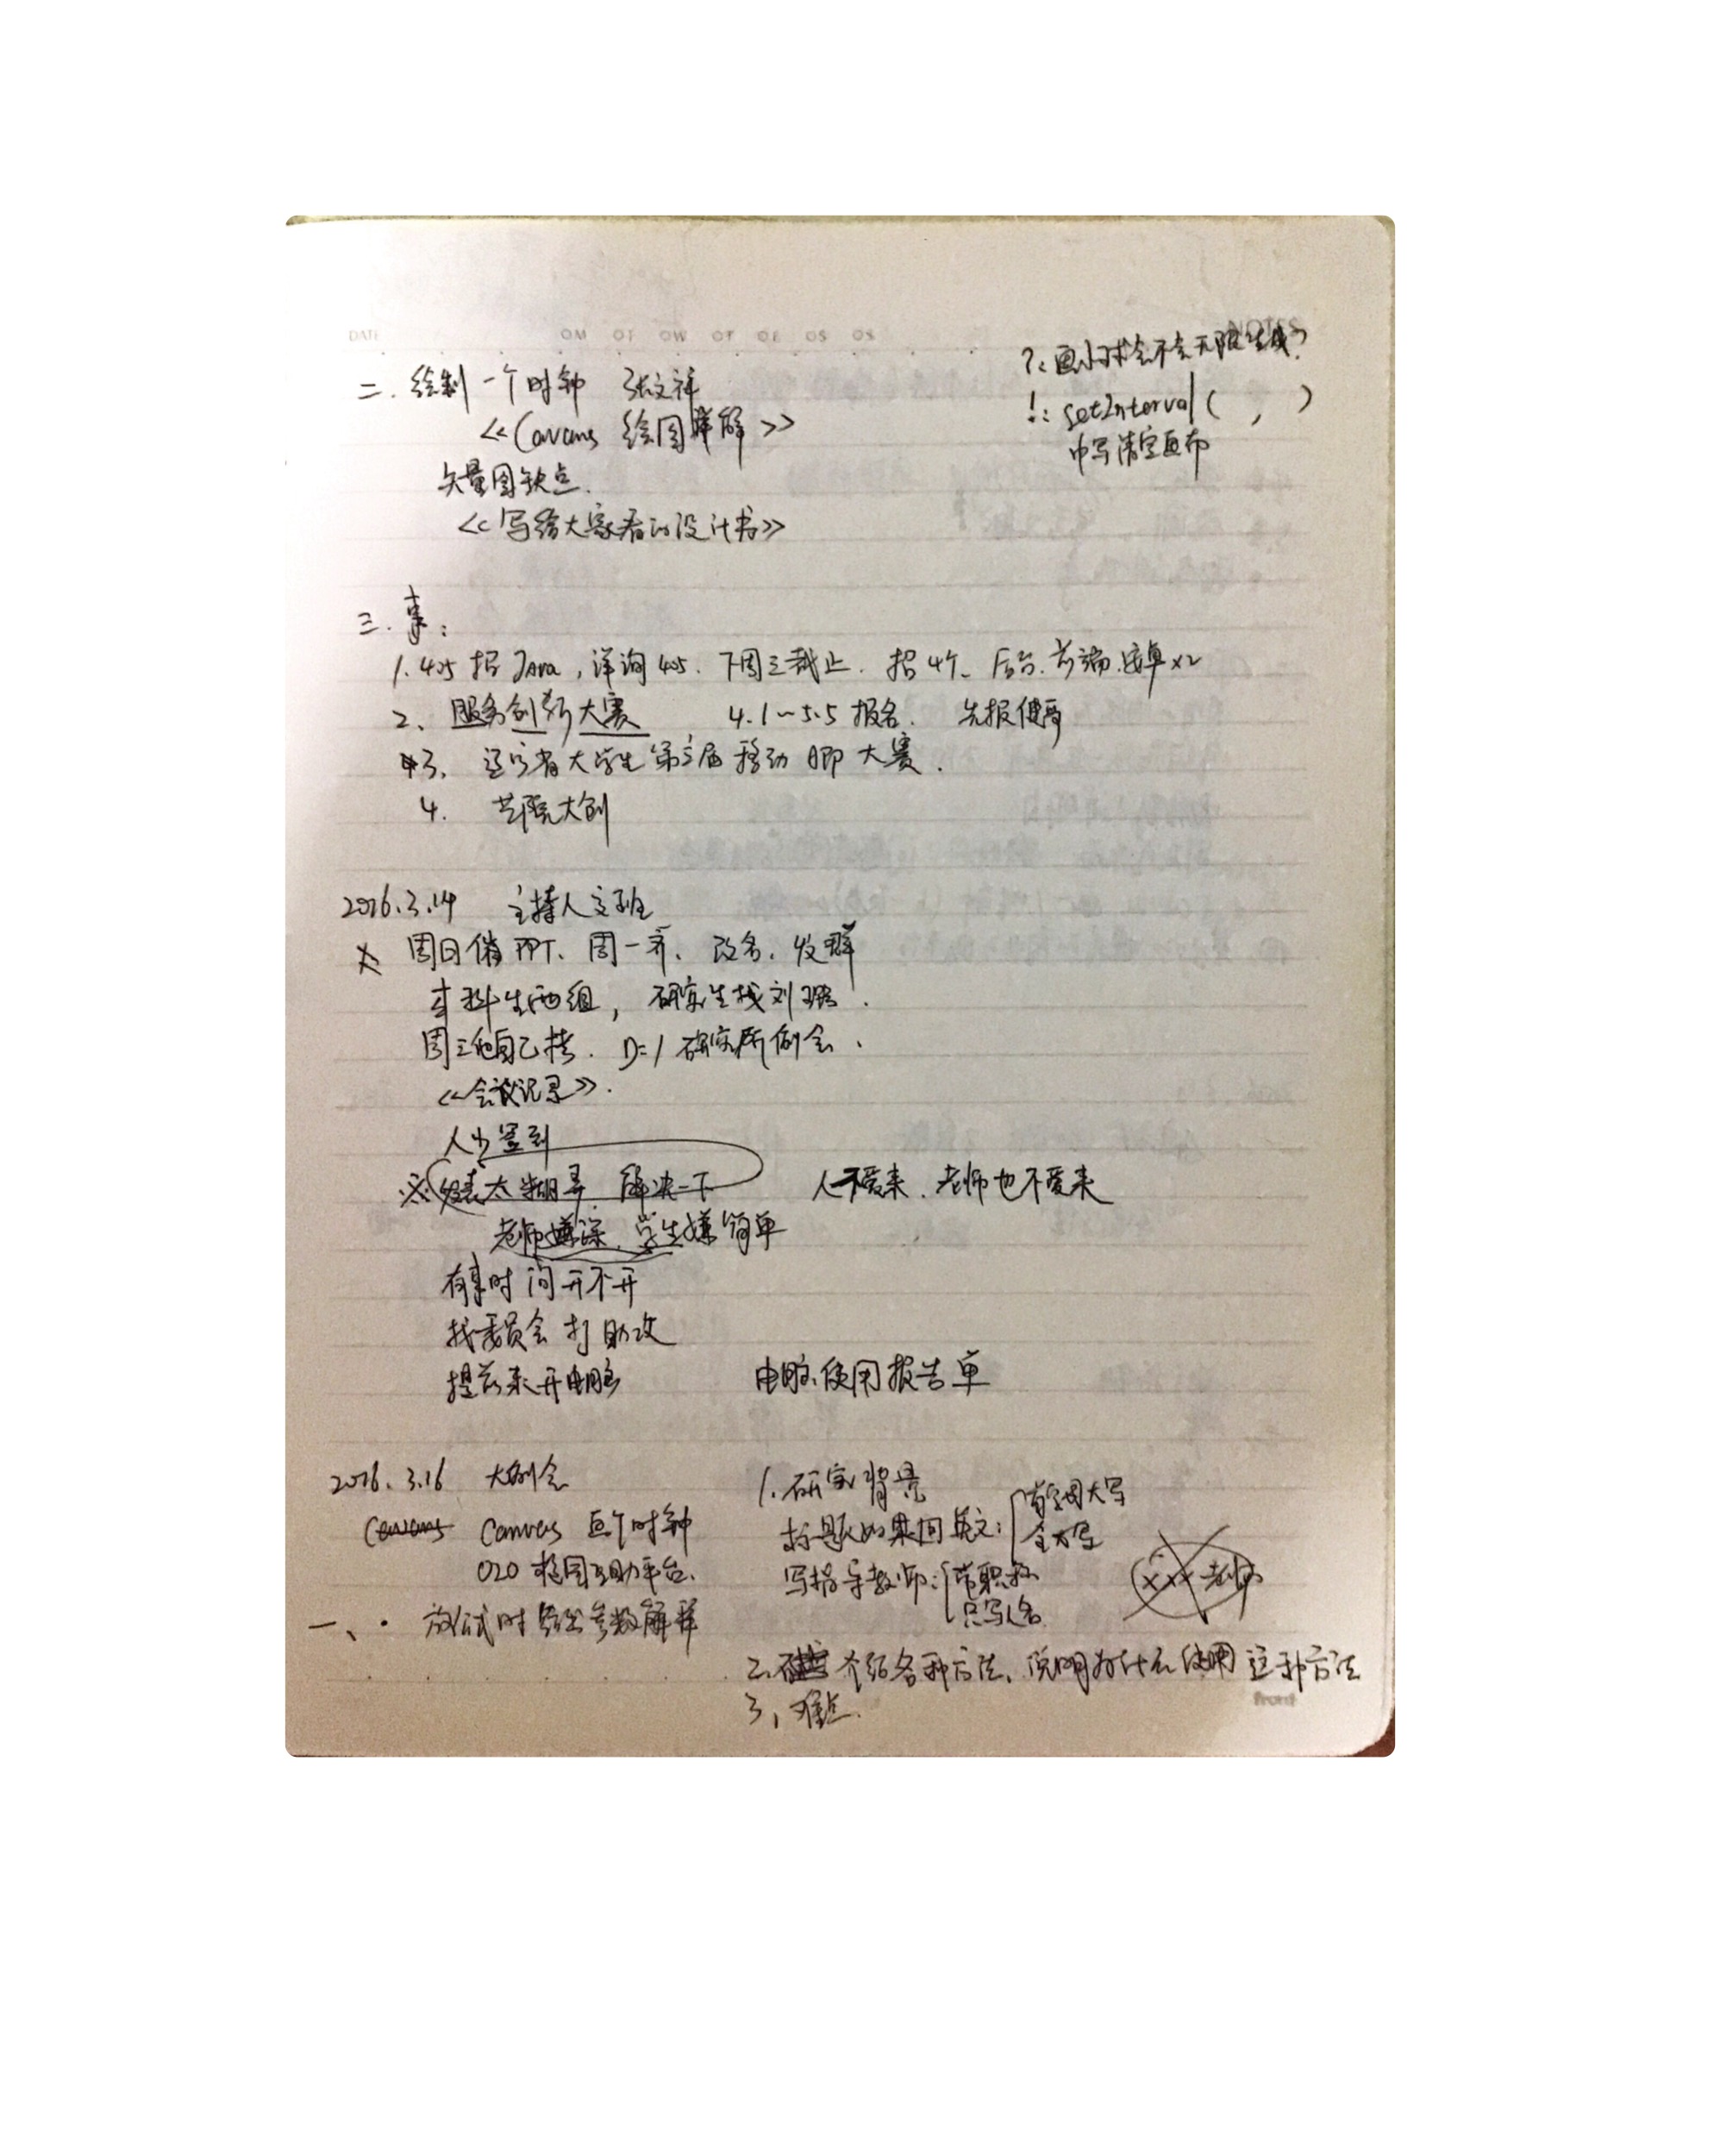 DATE
NOTES
二. 绘制一个时钟 张文祥
<<Cavans 绘图详解>>
矢量图缺点.
<<写给大家看的设计书>>
?: 画小球会不会无限生成?
!: setInterval( , )
中写清空画布
三. 事:
1. 405招Java, 详询405. 下周三截止. 招4个、后台.前端.安卓x2
2、服务创新大赛 4.1~5.5 报名. 先报健哥
3、辽宁省大学生第三届移动 APP 大赛.
4. 艺院大创
2016.3.14 主持人交班
周日催PPT、周一齐、改名、发群
本科生两组, 研究生找刘
周三自己拷. D=1 研究所例会.
<<会议记录>>.
人少签到
※ 发表太糊弄 解决一下 人不爱来. 老师也不爱来
老师嫌深. 学生嫌简单
有事时问开不开
找委员会打助攻
提前来开电脑 电脑使用报告单
2016.3.16 大例会
Canvas Canvas 画个时钟
O2O 校园互助平台.
一、· 放公式时给出参数解释
1. 研究背景
标题如果用英文: 首字母大写
全大写
写指导教师: 带职称
只写人名
xxx老师
2. 介绍各种方法, 说明为什么使用这种方法
3, 难点.
front